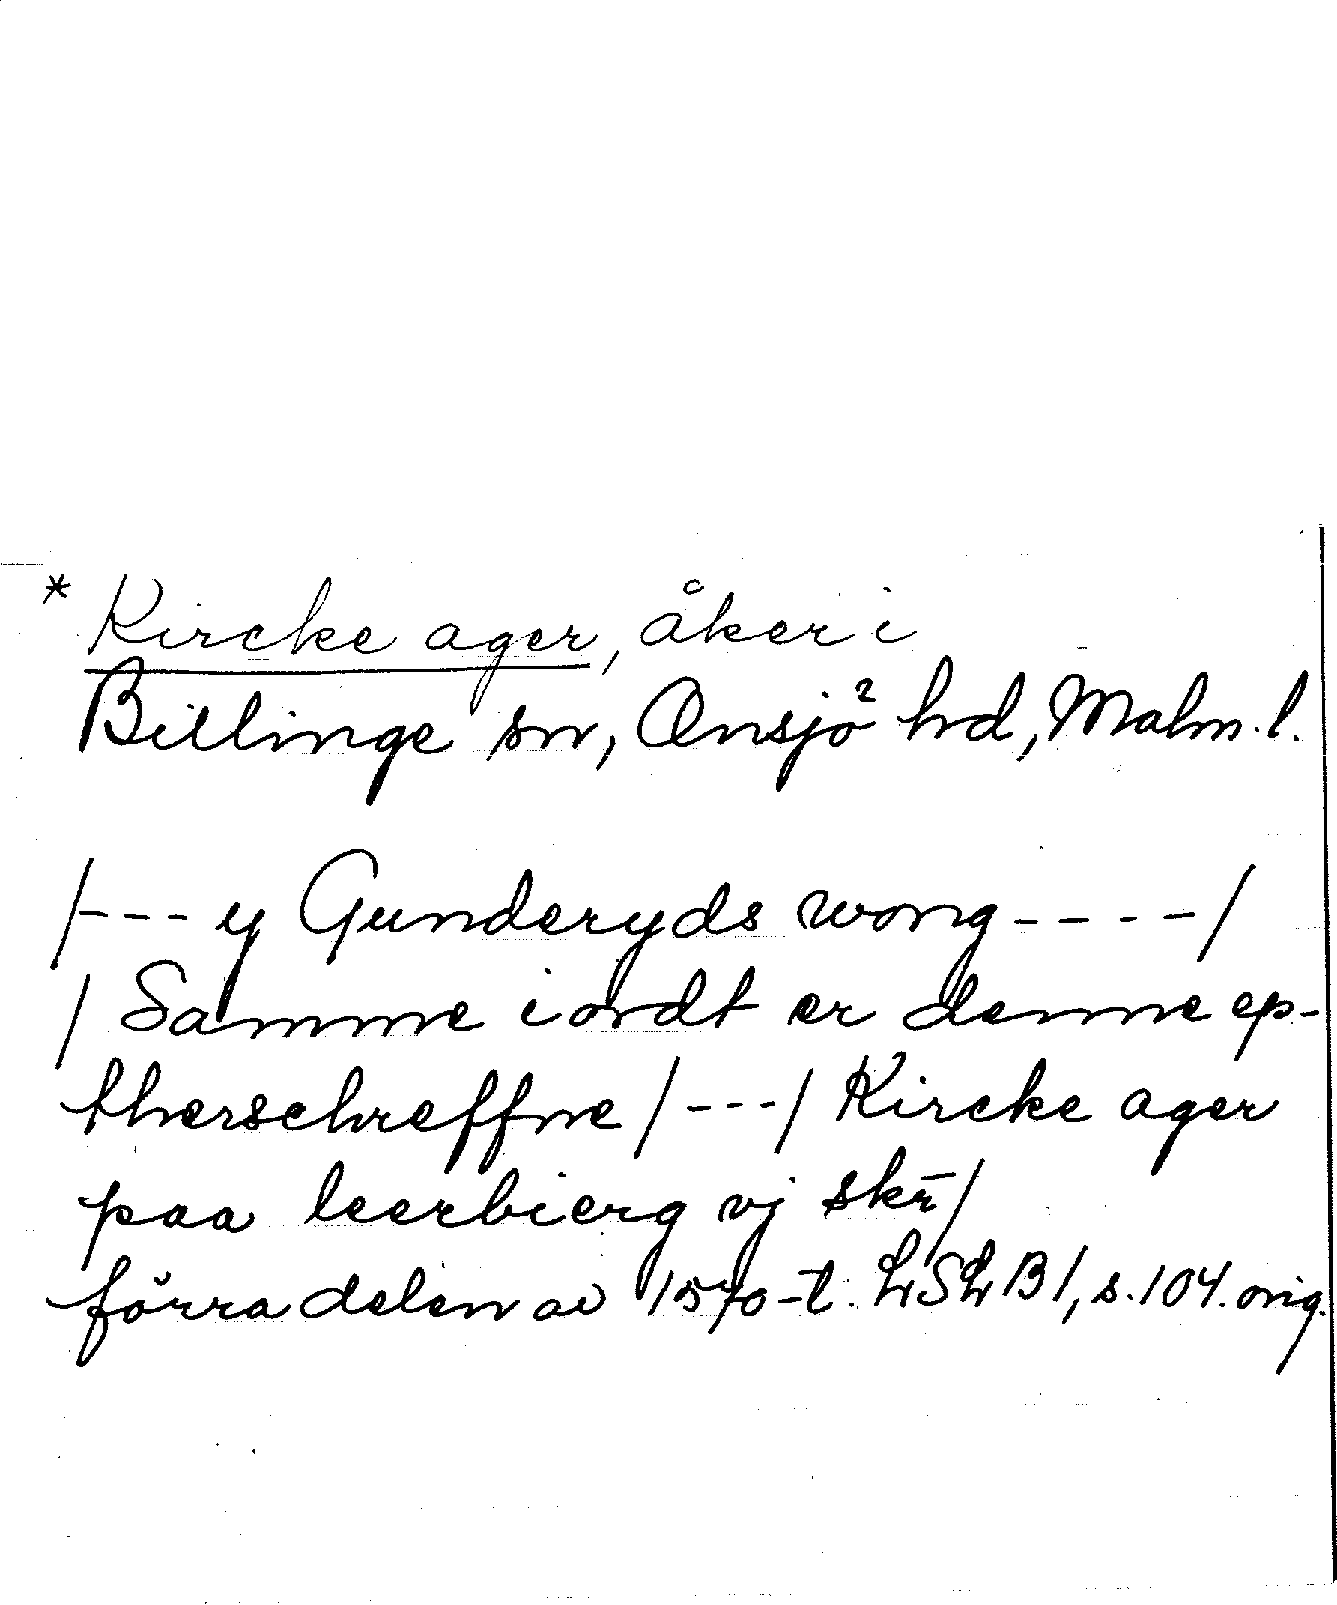 * Kircke ager, åker i
Billinge sn, Onsjö hd, Malm. l.
/--- y Gunderyds wong ----/
/ Samme iordt er denne ep-
therschreffne /---/ Kircke ager
paa leerbierg vj skr̄/
förra delen av 1570-t. LSLB1, s. 104. orig.